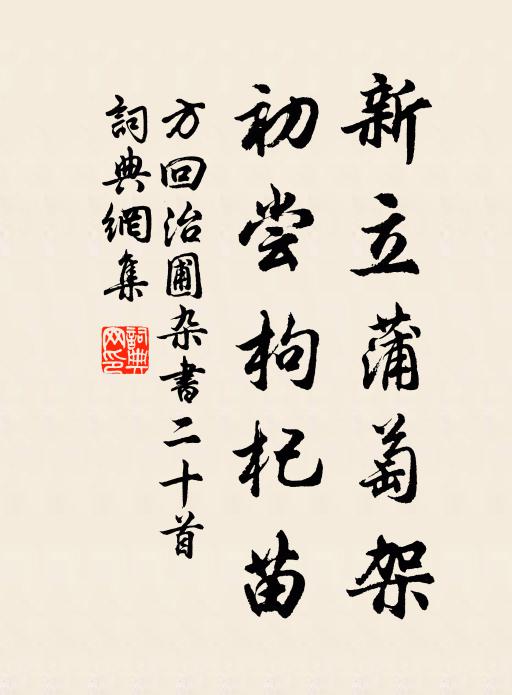 新立蒲萄架
初尝枸杞苗
方回治圃杂書二十首
詞典網集
詞典网印